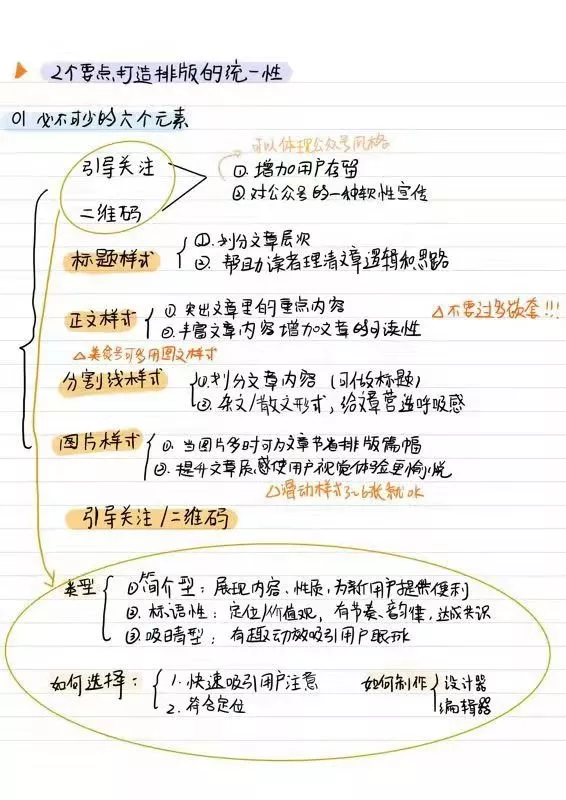 2个要点打造排版的统一性
01 必不可少的六个元素
可以体现公众号风格
引导关注
二维码
①. 增加用户存留
② 对公众号的一种软性宣传
标题样式
①. 划分文章层次
②. 帮助读者理清文章逻辑和思路
正文样式
① 突出文章里的重点内容
② 丰富文章内容 增加文章的可读性
△不要过多嵌套!!!
△美食号可多用图文样式
分割线样式
① 划分文章内容 (可做标题)
②. 杂文/散文形式, 给文章营造呼吸感
图片样式
①. 当图片多时可为文章节省排版篇幅
②. 提升文章层感使用户视觉体验更愉悦
△滑动样式3~6张就ok
引导关注/二维码
类型
①简介型: 展现内容、性质, 为新用户提供便利
②. 标语性: 定位/价值观, 有节奏、韵律, 达成共识
③ 吸睛型: 有趣动放吸引用户眼球
如何选择:
1. 快速吸引用户注意
2. 符合定位
如何制作
设计器
编辑器